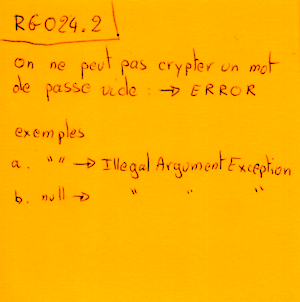 RG024.2
on ne peut pas crypter un mot
de passe vide : → ERROR
exemples
a. "" → Illegal Argument Exception
b. null → " " "